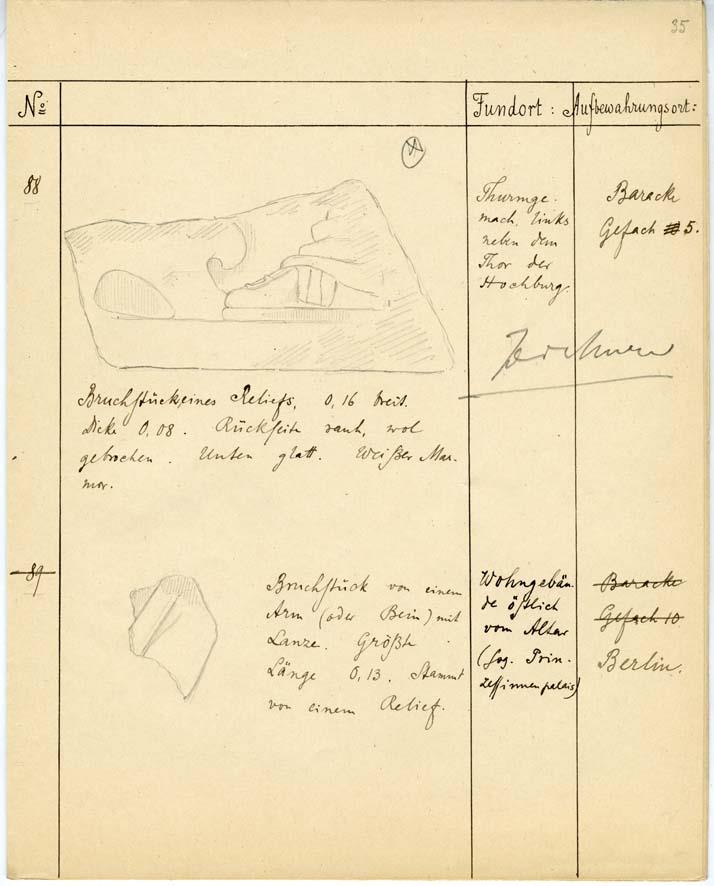 35
No Fundort: Aufbewahrungsort:
88
Thurmge-
mach links
neben dem
Thor der
Hochburg.
Baracke
Gefach 5.
Zeichnen
Bruchstück eines Reliefs, 0,16 breit.
Dicke 0,08. Rückseite rauh, wol
gebrochen. Unten glatt. Weißer Mar-
mor.
89
Bruchstück von einem
Arm (oder Bein) mit
Lanze. Größte
Länge 0,13. Stammt
von einem Relief.
Wohngebäu-
de östlich
vom Altar
(sog. Prin-
zessinnenpalais)
Baracke
Gefach 10
Berlin.